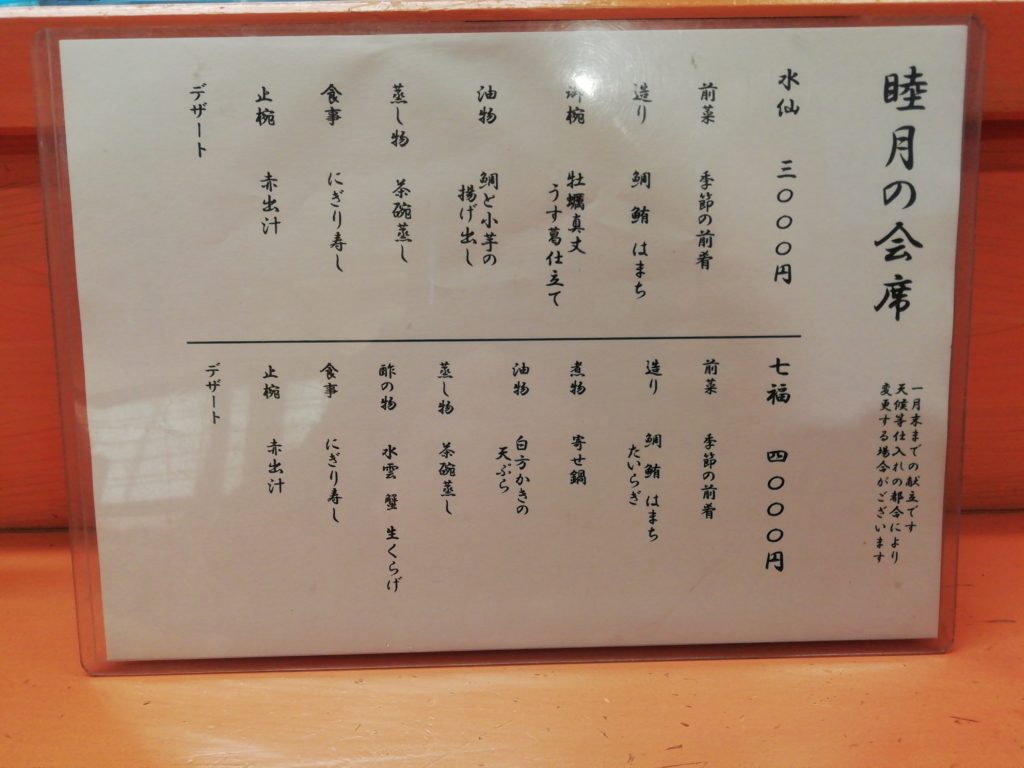 睦月の会席
一月末までの献立です
天候等仕入れの都合により
変更する場合がございます
水仙 三〇〇〇円
前菜 季節の前肴
造り 鯛 鮪 はまち
御椀 牡蠣真丈
うす葛仕立て
油物 鯛と小芋の
揚げ出し
蒸し物 茶碗蒸し
食事 にぎり寿し
止椀 赤出汁
デザート
七福 四〇〇〇円
前菜 季節の前肴
造り 鯛 鮪 はまち
たいらぎ
煮物 寄せ鍋
油物 白方かきの
天ぷら
蒸し物 茶碗蒸し
酢の物 水雲 蟹 生くらげ
食事 にぎり寿し
止椀 赤出汁
デザート